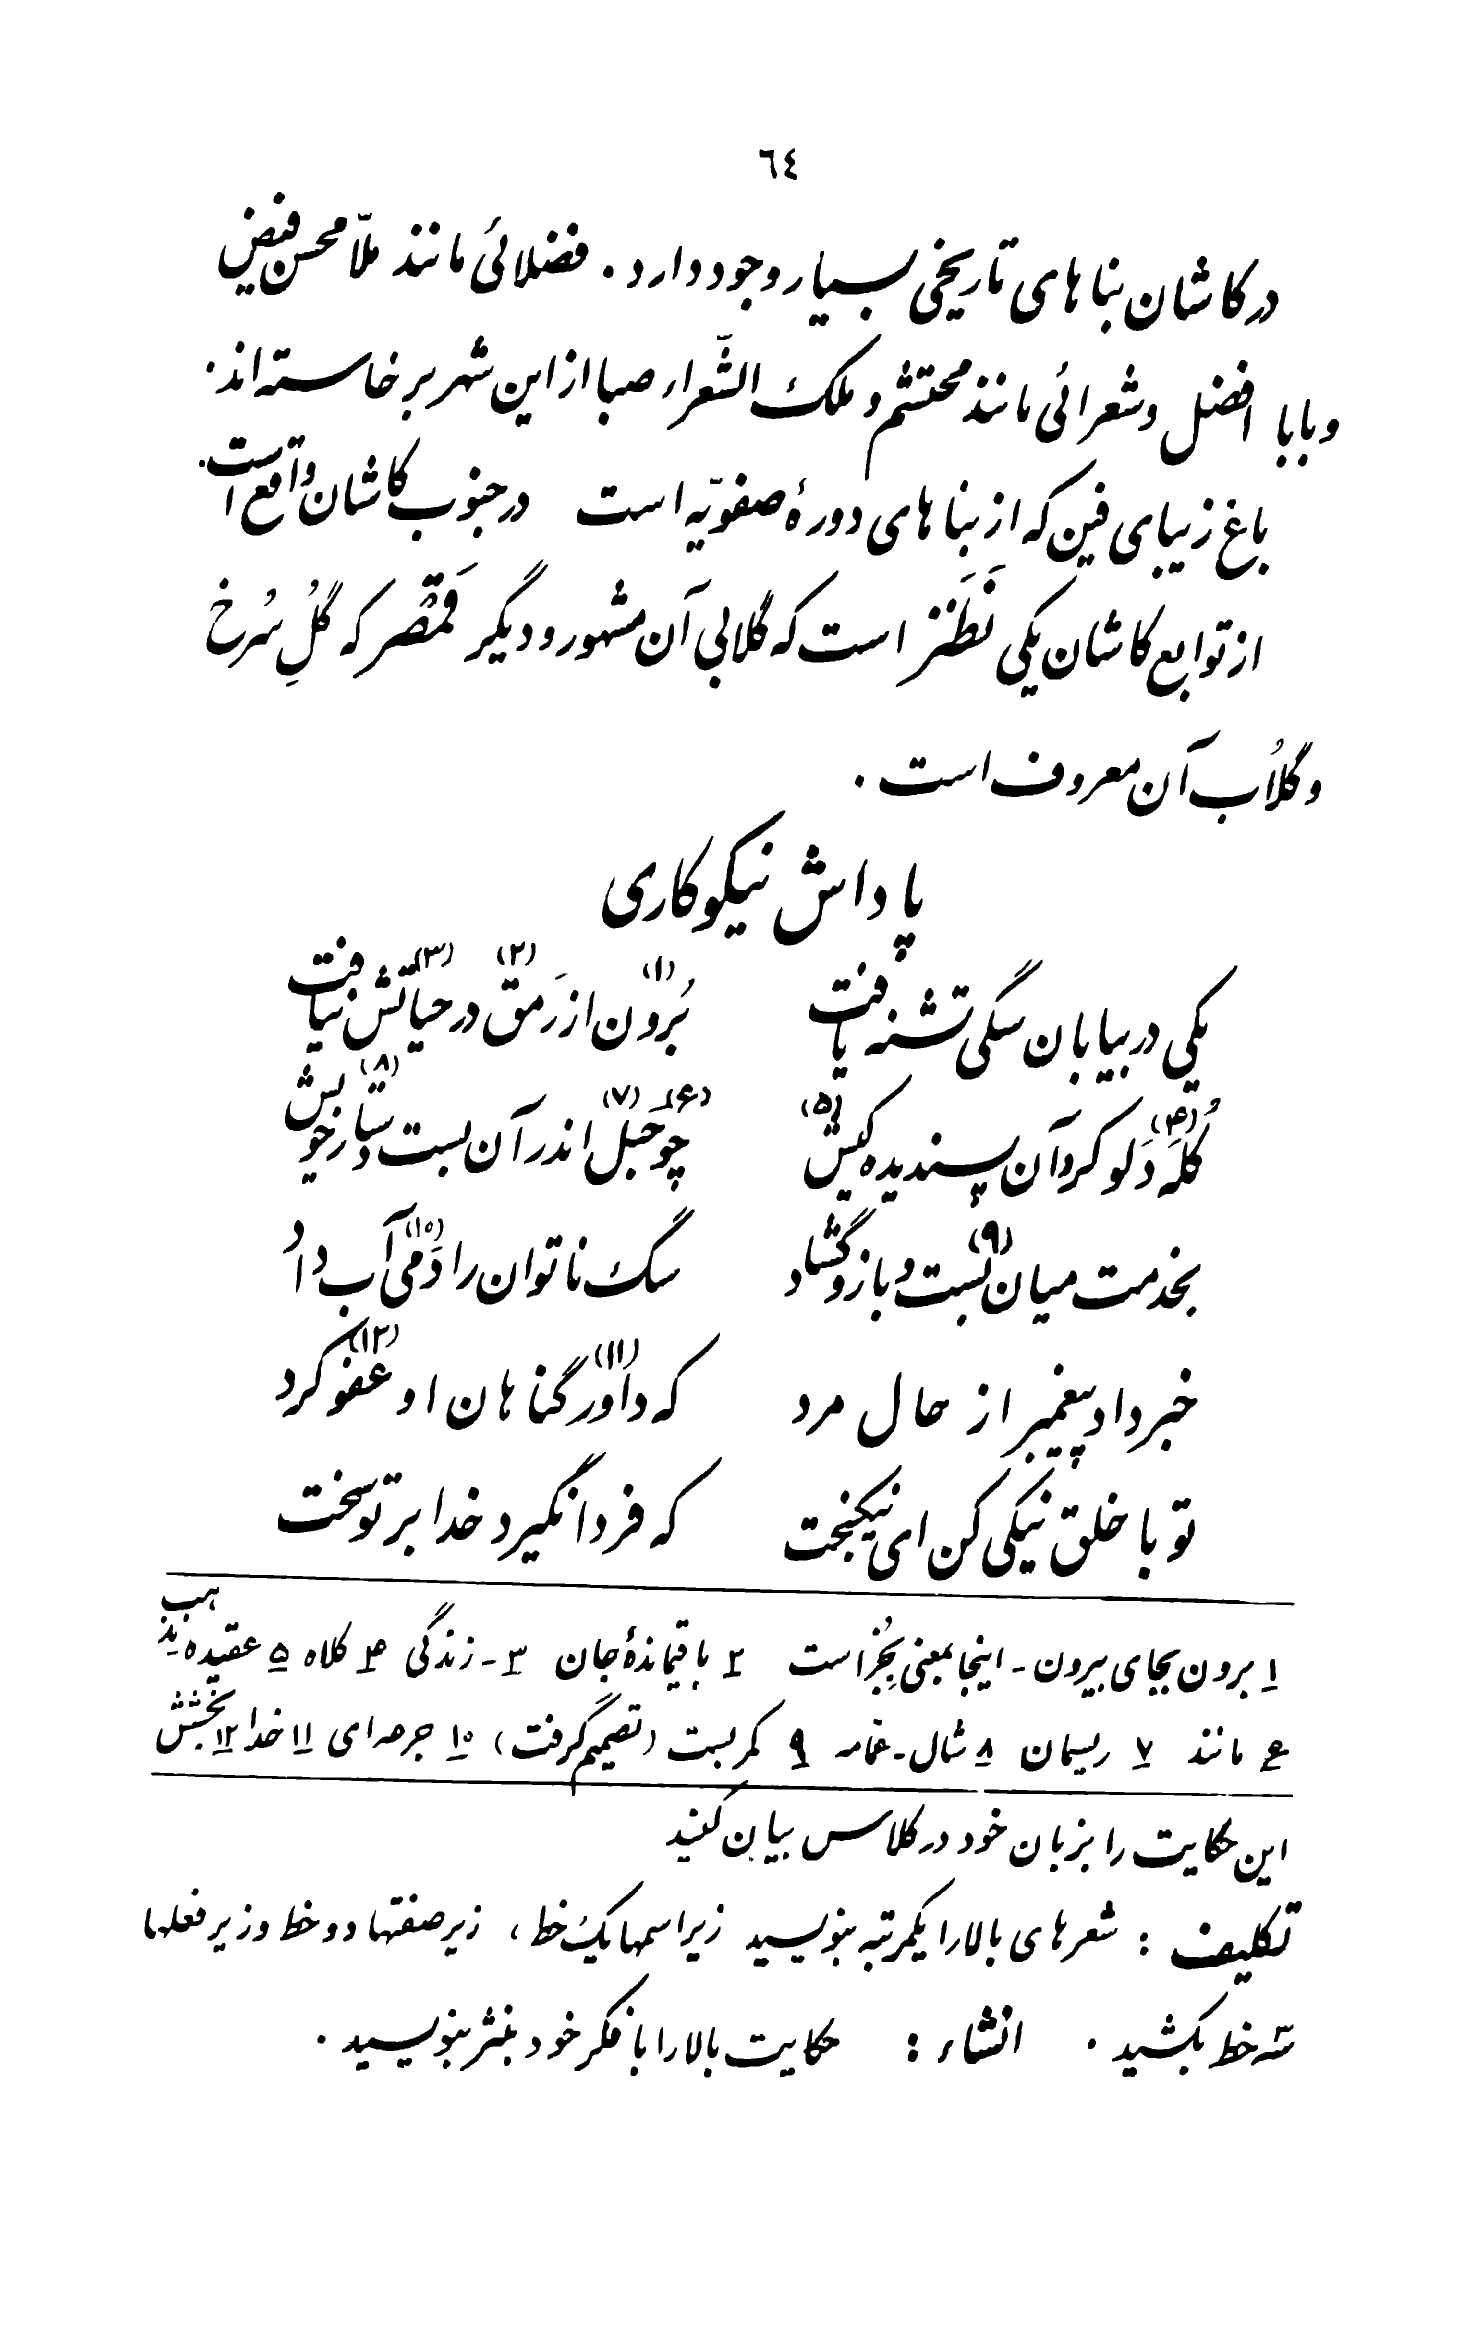 ٦٤
در کاشان بناهای تاریخی بسیار وجود دارد . فضلائی مانند ملّا محسن فیض
و بابا افضل و شعرائی مانند محتشم و ملک الشّعراء صبا از این شهر برخاسته اند .
باغ زیبای فین که از بناهای دورهٔ صفویّه است در جنوب کاشان واقع است .
از توابع کاشان یکی نَطَنز است که گلابی آن مشهور و دیگر قَمْصَر که گلُِ سُرخ
و گلُاب آن معروف است .
پاداش نیکوکاری
یکی در بیابان سگی تشنه یافت بُرون (۱) از رَمق (۲) در حیاتش (۳) نیافت
کُلَه (۴) دَلو کرد آن پسندیده کیش (۵) چو (۶) حَبل (۷) اندر آن بست دستار (۸) خویش
بخدمت میان بست (۹) و بازو گشاد سگ ناتوان را دَمی (۱۰) آب داد
خبر داد پیغمبر از حال مرد که داور (۱۱) گناهان او عفو (۱۲) کرد
تو با خلق نیکی کن ای نیکبخت که فردا نگیرد خدا بر تو سخت
۱ برون بجای بیرون - اینجا بمعنی بجُز است ۲ باقیماندهٔ جان ۳ - زندگی ۴ کلاه ۵ عقیده - مذهب
۶ مانند ۷ ریسمان ۸ شال - عمّامه ۹ کمر بست (تصمیم گرفت) ۱۰ جرعه ای ۱۱ خدا ۱۲ بخشش
این حکایت را بزبان خود در کلاس بیان کنید
تکلیف : شعرهای بالا را یکمرتبه بنویسید زیر اسمها یک خط ، زیر صفتها دو خط و زیر فعلها
سه خط بکشید . انشاء : حکایت بالا را با فکر خود بنثر بنویسید .